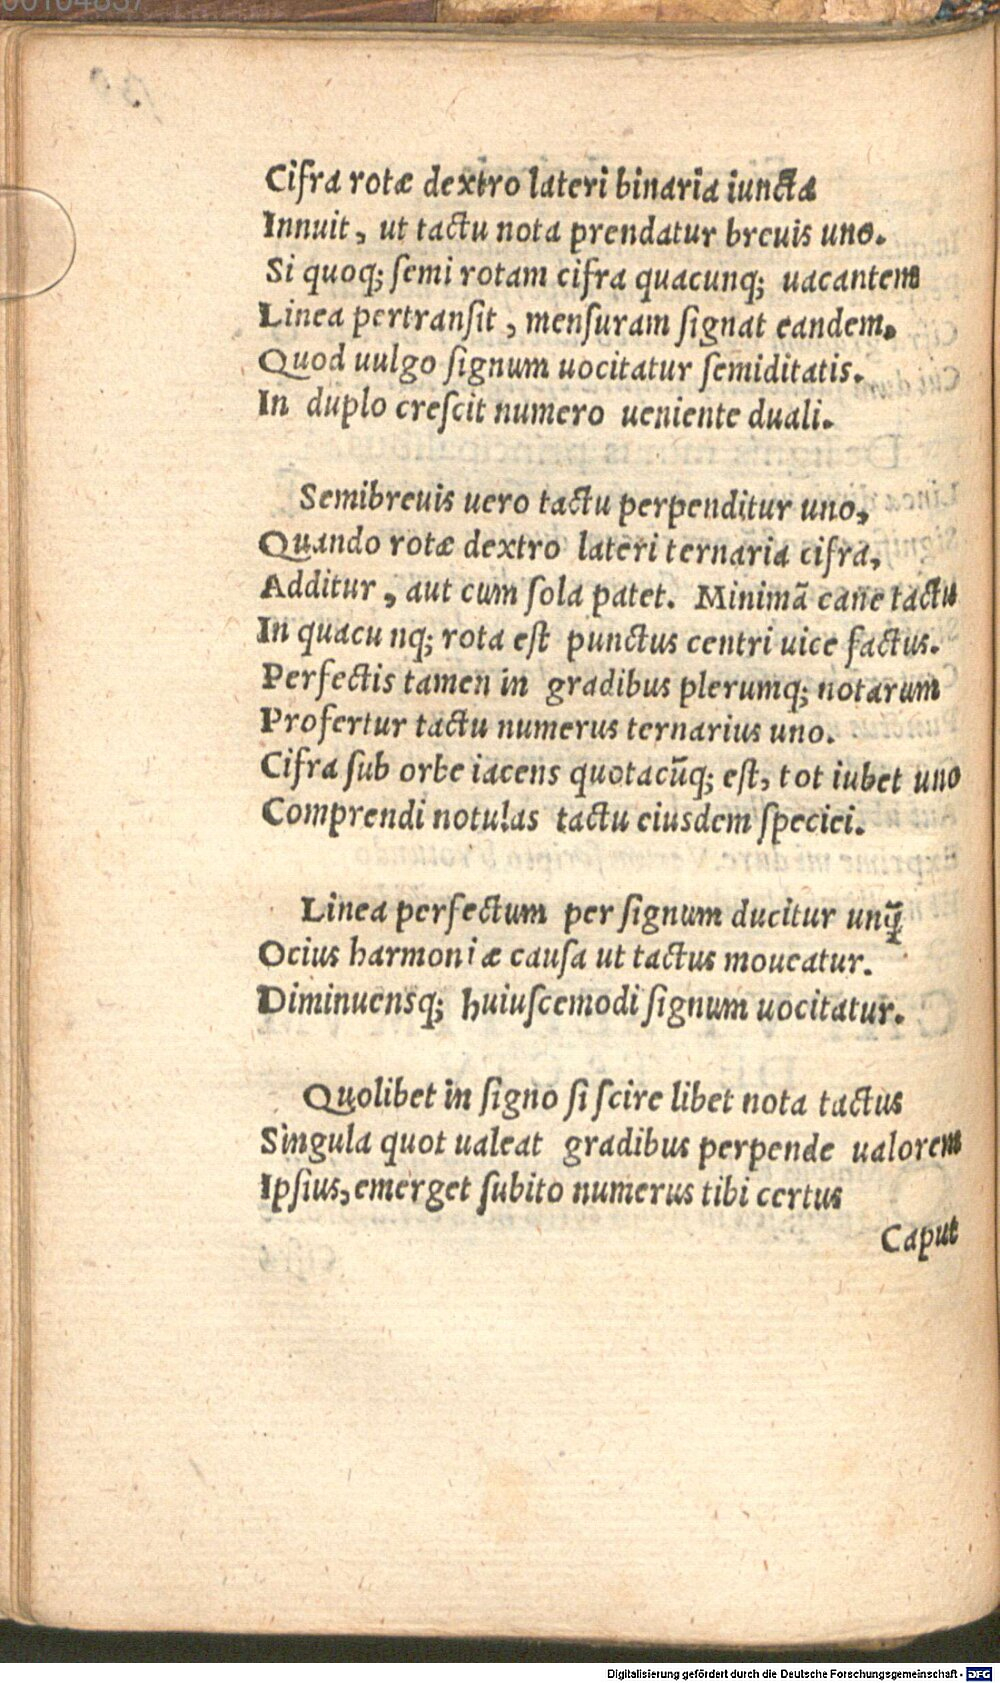 Cifra rotæ dextro lateri binaria iuncta
Innuit, ut tactu nota prendatur breuis uno.
Si quoq; ſemi rotam cifra quacunq; uacantem
Linea pertranſit, menſuram ſignat eandem.
Quod uulgo ſignum uocitatur ſemiditatis.
In duplo creſcit numero ueniente duali.
Semibreuis uero tactu perpenditur uno,
Quando rotæ dextro lateri ternaria cifra,
Additur, aut cum ſola patet. Minimã cane tactu
In quacunq; rota eſt punctus centri uice factus.
Perfectis tamen in gradibus plerumq; notarum
Profertur tactu numerus ternarius uno.
Cifra ſub orbe iacens quotacũq; eſt, tot iubet uno
Comprendi notulas tactu eiusdem ſpeciei.
Linea perfectum per ſignum ducitur unꝗ̃
Ocius harmoniæ cauſa ut tactus moueatur.
Diminuensq; huiuſcemodi ſignum uocitatur.
Quolibet in ſigno ſi ſcire libet nota tactus
Singula quot ualeat gradibus perpende ualorem
Ipſius, emerget ſubito numerus tibi certus
Caput
Digitalisierung gefördert durch die Deutsche Forschungsgemeinschaft - DFG